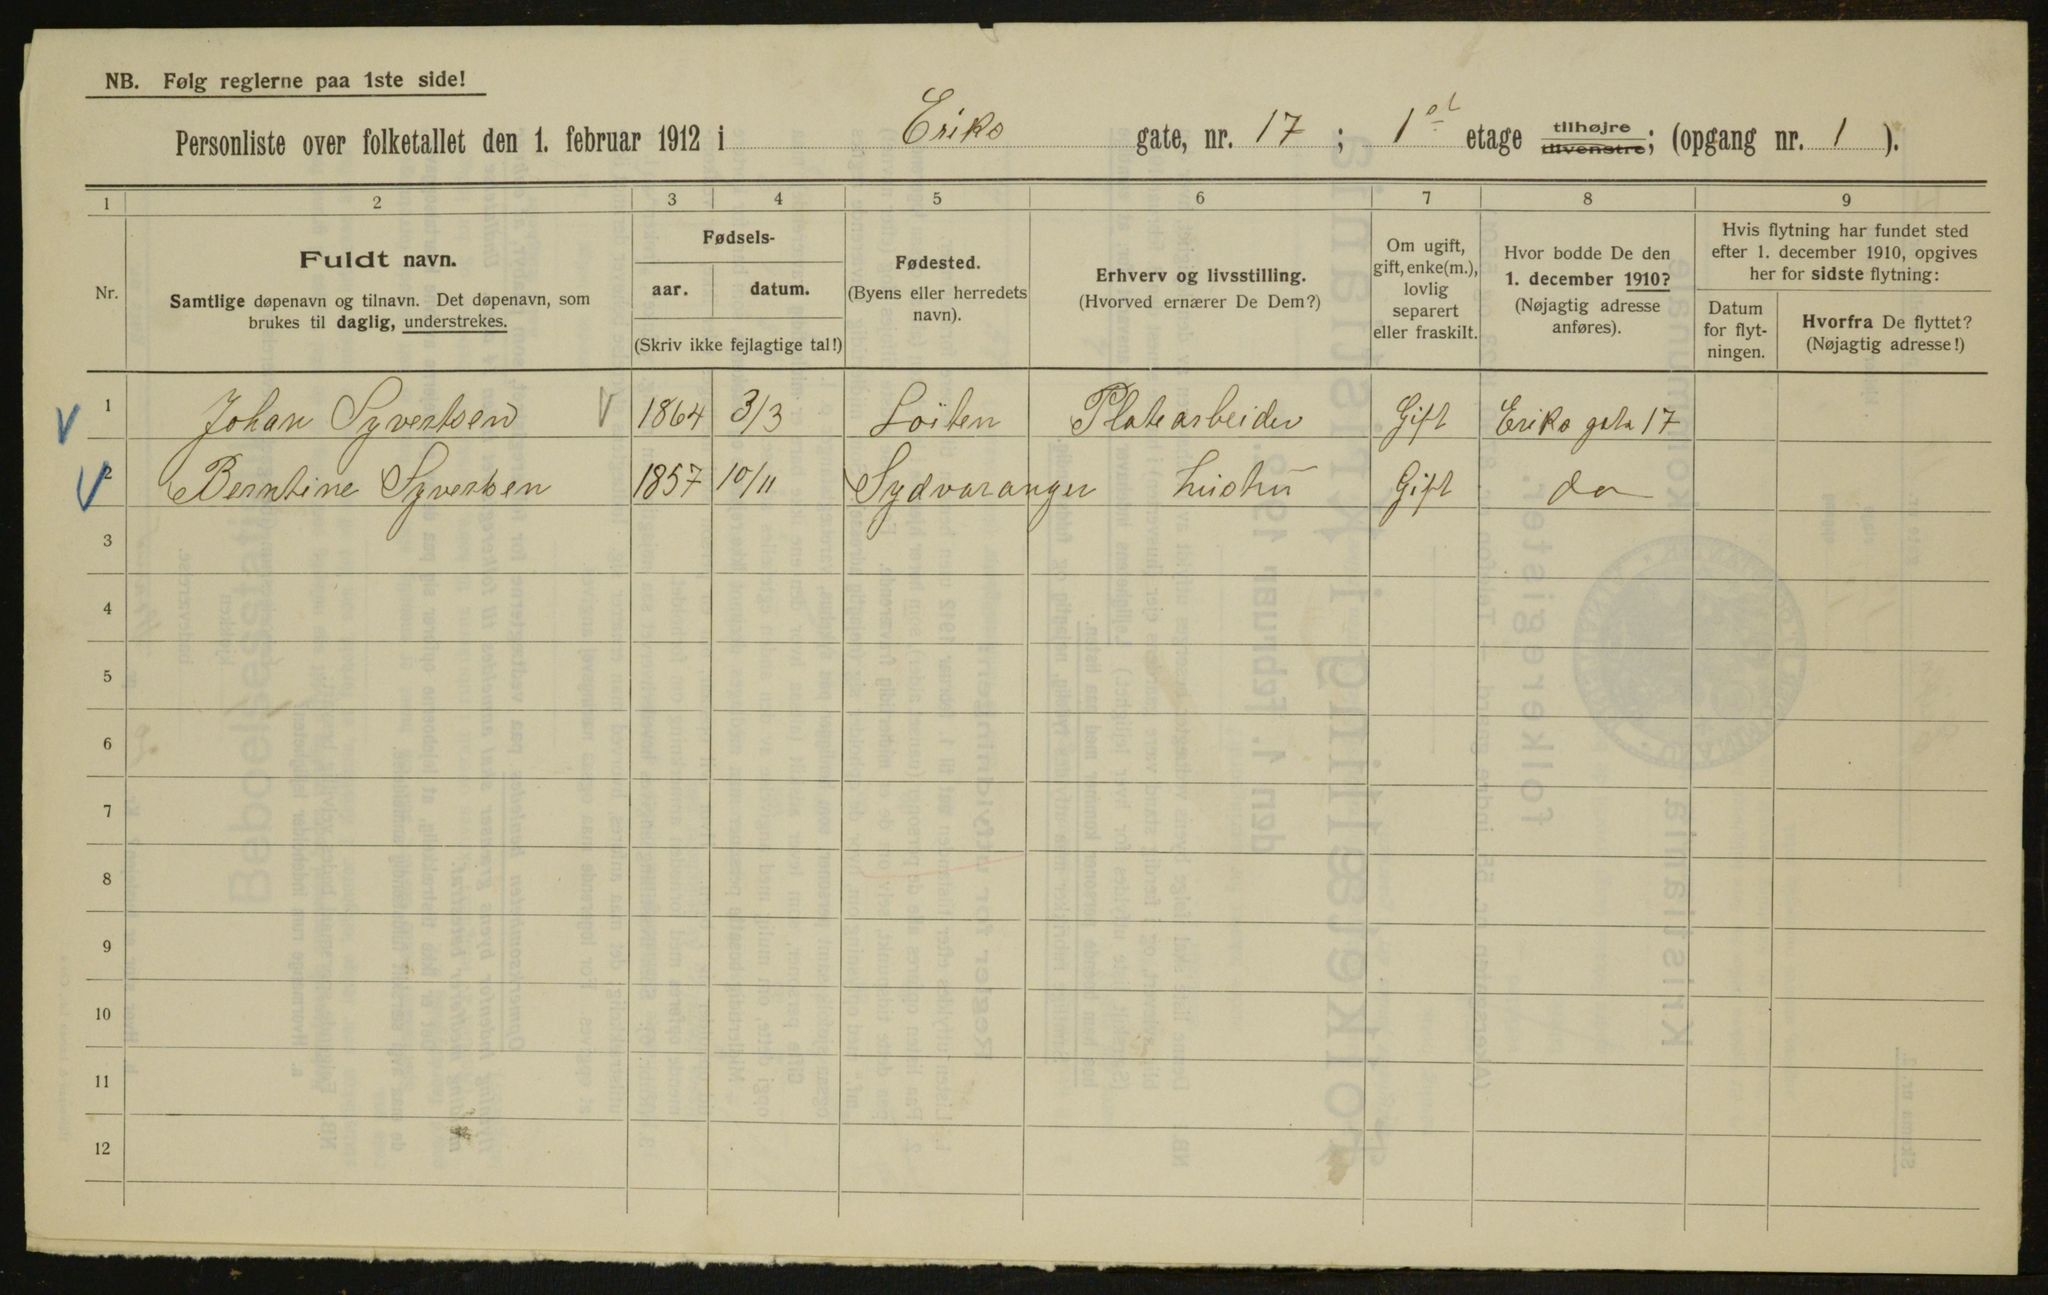 NB. Følg reglerne paa 1ste side!
Personliste over folketallet den 1. februar 1912 i Eriks gate, nr. 17 ; 1 st etage tilhøjre tilvenstre; (opgang nr. 1 ).
1 2 3 4 5 6 7 8 9
Nr.
Fuldt navn.
Samtlige døpenavn og tilnavn. Det døpenavn, som
brukes til daglig, understrekes.
Fødsels-
aar. datum.
(Skriv ikke fejlagtige tal!)
Fødested.
(Byens eller herredets
navn).
Erhverv og livsstilling.
(Hvorved ernærer De Dem?)
Om ugift,
gift, enke(m.),
lovlig
separert
eller fraskilt.
Hvor bodde De den
1. december 1910?
(Nøjagtig adresse
anføres).
Hvis flytning har fundet sted
efter 1. december 1910, opgives
her for sidste flytning:
Datum
for flyt-
ningen.
Hvorfra De flyttet?
(Nøjagtig adresse!)
1 Johan Syvertsen 1864 3/3 Löiten Platearbeider Gift Eriks gata 17
2 Berntine Syvertsen 1857 10/11 Sydvaranger Hustru Gift do
3
4
5
6
7
8
9
10
11
12